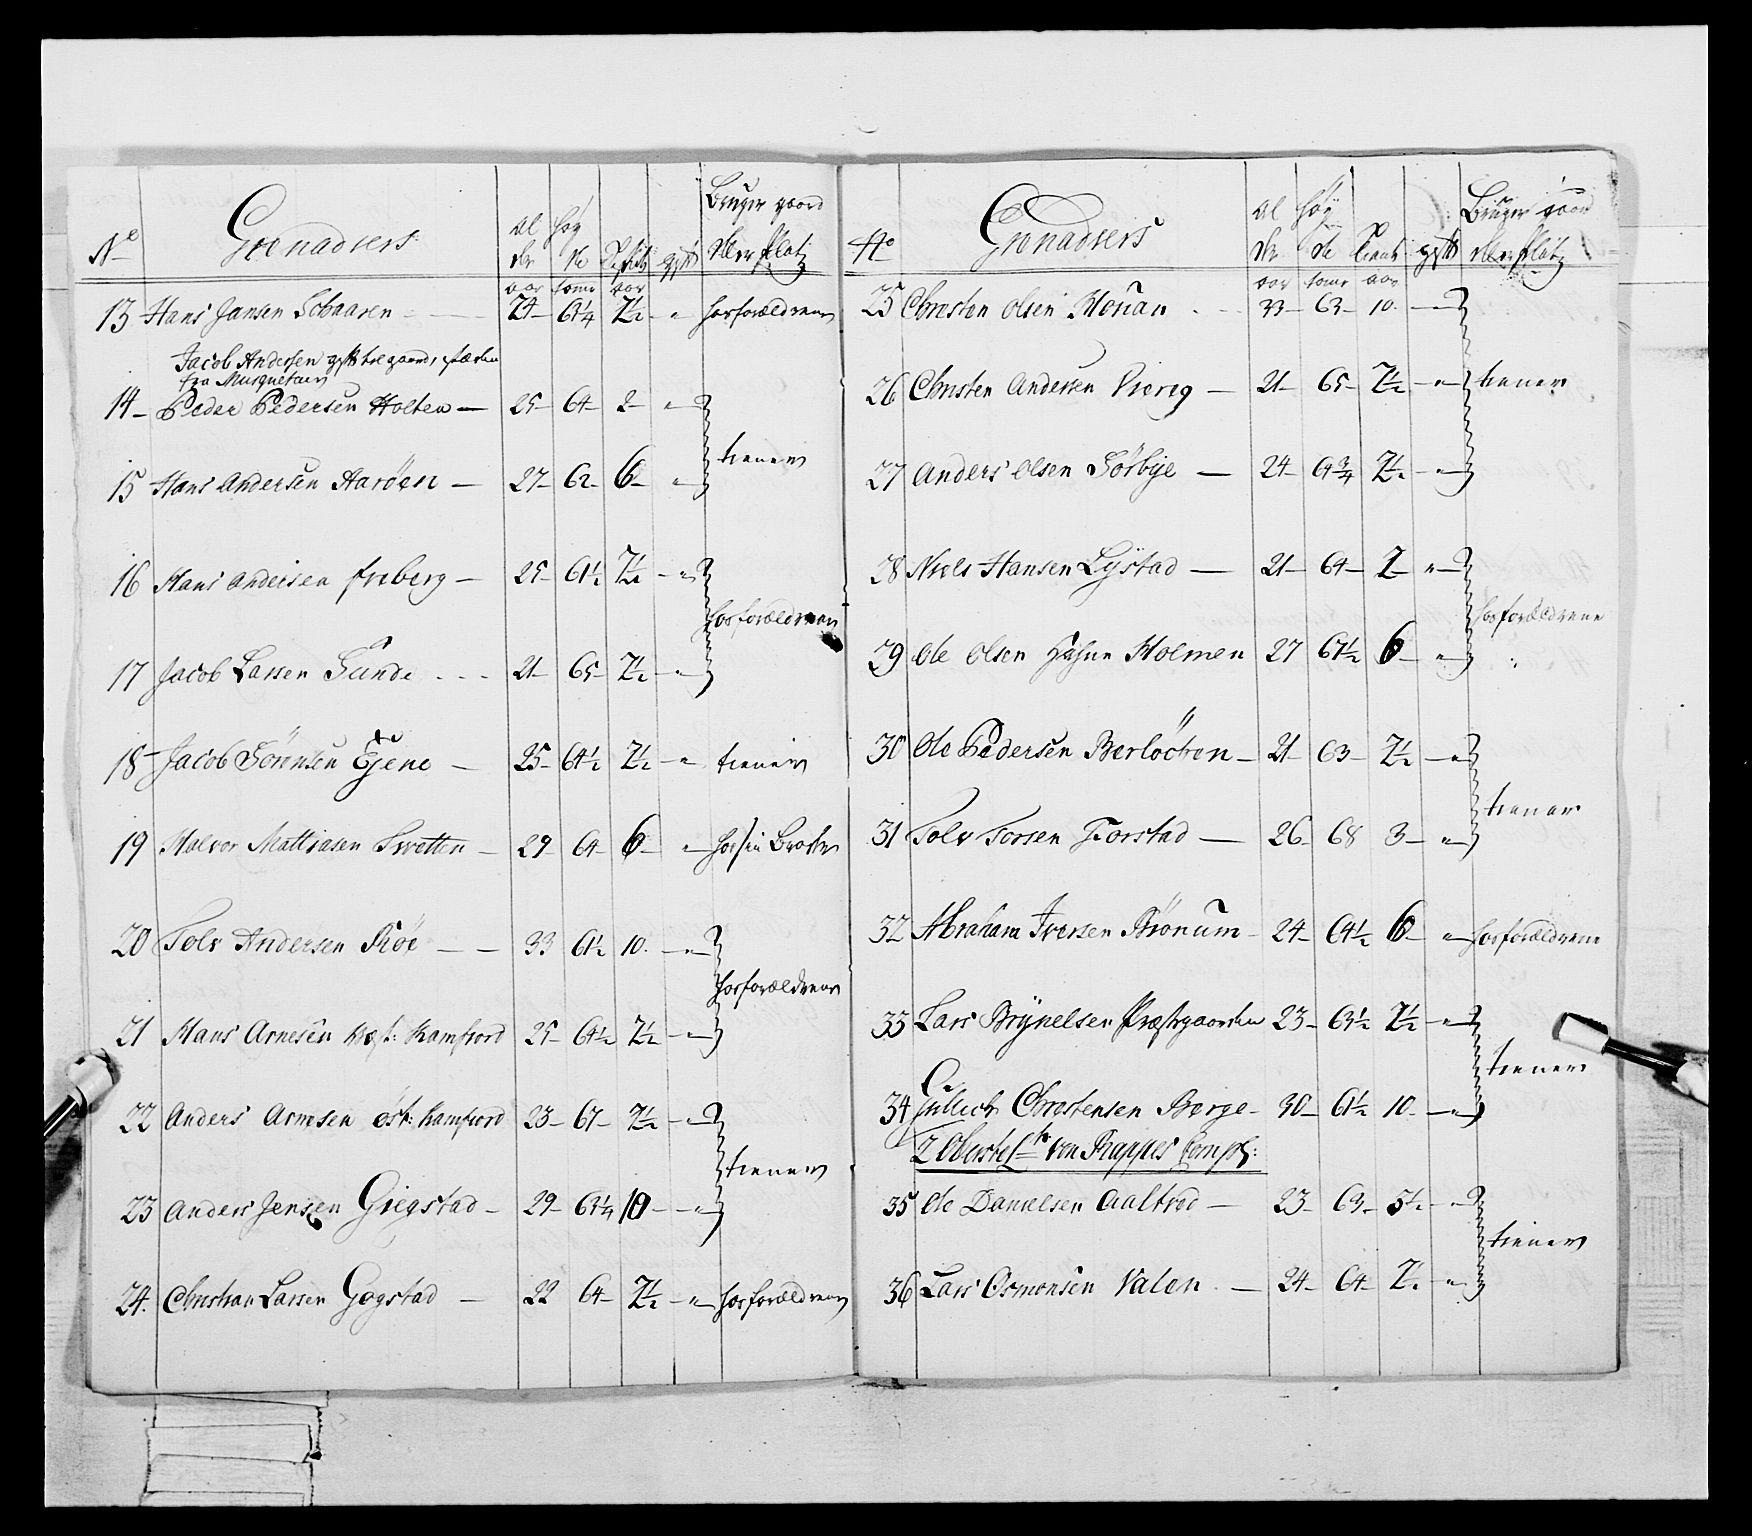 No Grenadeers Al der høy de gift Bruger gaard eller platz
aar tome aar
13 Hans Jansen Schaaren 24 63¼ 7½ " hos forældrene
Jacob Andersen
fra Musqueterer
14 Peder Pedersen Holten 25 64 2 "
tiener
15 Hans Andersen Aarøen 27 62 6 "
16 Hans Andersen friberg 25 61½ 7½ "
hos forældrene
17 Jacob Larsen Sunde 21 65 7½ "
18 Jacob Sørensen Ejene 25 64½ 7½ " tiener
19 Halvor Mattiasen Tvetten 29 64 6 " hos sin Broder
20 Tolv Andersen Røe 33 61½ 10 "
hos forældrene
21 Hans Arnesen west: Kamfiord 25 64½ 7½ "
22 Anders Arnesen øst: Kamfiord 23 67 7½ "
tiener
23 Anders Jensen Giegstad 29 63¼ 10 "
24 Christian Larsen Gogstad 22 64 7½ " hos forældrene
No Grenadeers Al der høy de tient gift Bruger gaard eller platz
aar tome aar
25 Christen Olsen Mouan 33 63 10 "
26 Christen Andersen Viereg 21 65 7½ " tiener
27 Anders Olsen Sørbye 24 61¾ 7½ "
28 Niels Hansen Lystad 21 64 7 "
hos forældrene
29 Ole Olsen Holmen 27 67½ 6 "
30 Ole Pedersen Berløchen 21 63 7½ "
tiener
31 Tolv Torsen Torstad 26 68 3 "
32 Abraham Iversen Brønum 24 64½ 6 " hos forældrene
33 Lars Brynelsen Præstgaarden 23 63½ 7½ "
tiener
34 Gullich Christensen Berge 30 61½ 10 "
2 Oberste Ltn von Rappes Comp:
35 Ole Danielsen Aaltved 23 63 5½ "
tiener
36 Lars Osmonsen Valen 24 64 7½ "